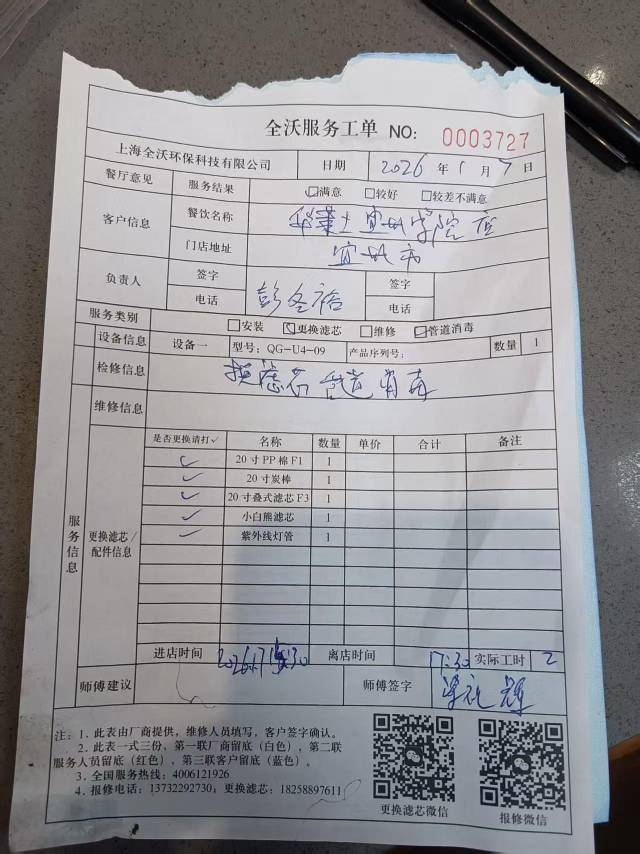 全沃服务工单 NO: 0003727
上海全沃环保科技有限公司 日期 2026 年 1 月 7 日
餐厅意见 服务结果 ☑满意 □较好 □较差不满意
客户信息 餐饮名称 学院店
门店地址 宜城市
负责人 签字 彭冬裕 签字
电话 电话
服务类别 □安装 ☑更换滤芯 □维修 ☑管道消毒
设备信息 设备一 型号: QG-U4-09 产品序列号: 数量 1
检修信息 换滤芯 管道消毒
维修信息
服务信息
更换滤芯/配件信息
是否更换请打✓ 名称 数量 单价 合计 备注
✓ 20寸PP棉F1 1
✓ 20寸炭棒 1
✓ 20寸叠式滤芯F3 1
✓ 小白熊滤芯 1
✓ 紫外线灯管 1
进店时间 离店时间 17:30 实际工时 2
师傅建议 师傅签字
注: 1．此表由厂商提供，维修人员填写，客户签字确认。
2．此表一式三份，第一联厂商留底（白色），第二联
服务人员留底（红色），第三联客户留底（蓝色）。
3．全国服务热线: 4006121926
4．报修电话: 13732292730; 更换滤芯: 18258897611
更换滤芯微信 报修微信